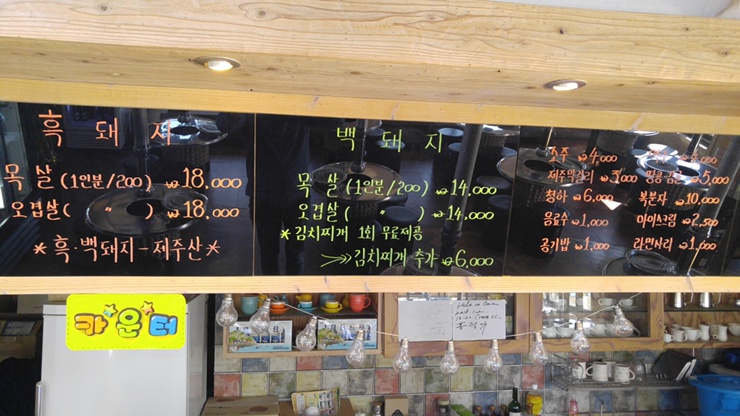 흑 돼 지
목 살 (1인분/200) ₩18,000
오겹살 ( 〃 ) ₩18,000
*흑·백돼지-제주산*
백 돼 지
목 살 (1인분/200) ₩14,000
오겹살 ( 〃 ) ₩14,000
*김치찌개 1회 무료제공
김치찌개 추가 ₩6,000
소주 ₩4,000
제주막걸리 ₩3,000
청하 ₩6,000
음료수 ₩1,000
공기밥 ₩1,000
₩5,000
복분자 ₩10,000
아이스크림 ₩2,500
라면사리 ₩1,000
카운터